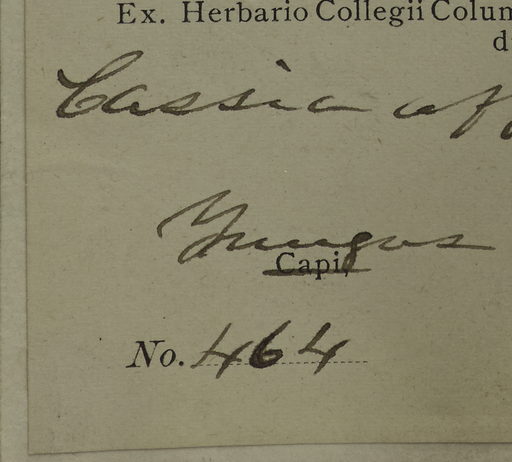 Ex. Herbario Collegii Colum
d
Cassia aff
Yungas
Capi,
No. 464